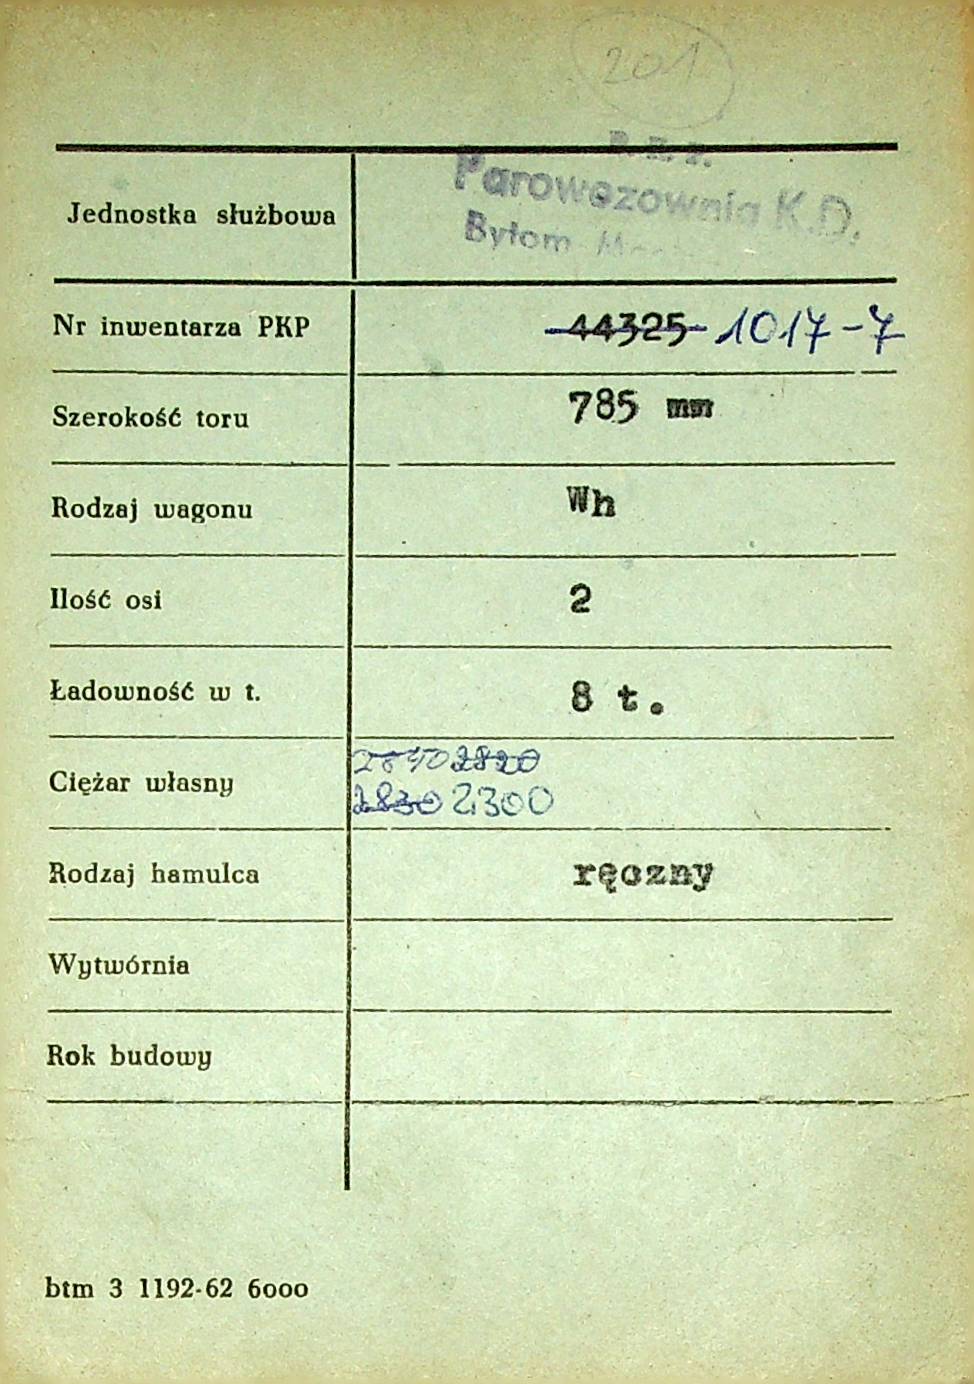 201
Parowozownia K.D.
Jednostka służbowa
Bytom
Nr inwentarza PKP 44325 1017-7
Szerokość toru 785 mm
Rodzaj wagonu Wh
Ilość osi 2
Ładowność w t. 8 t.
2820
Ciężar własny
2830 2300
Rodzaj hamulca ręczny
Wytwórnia
Rok budowy
btm 3 1192-62 6000